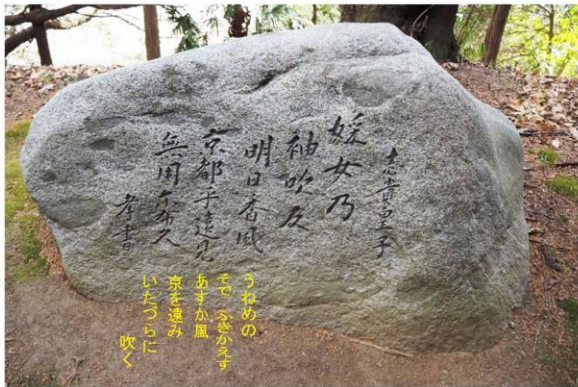 志貴皇子
婇女乃
袖吹反
明日香風
京都乎遠見
無用尓布久
孝書
うねめの
そで ふきかえす
あすか風
京を遠み
いたづらに
吹く